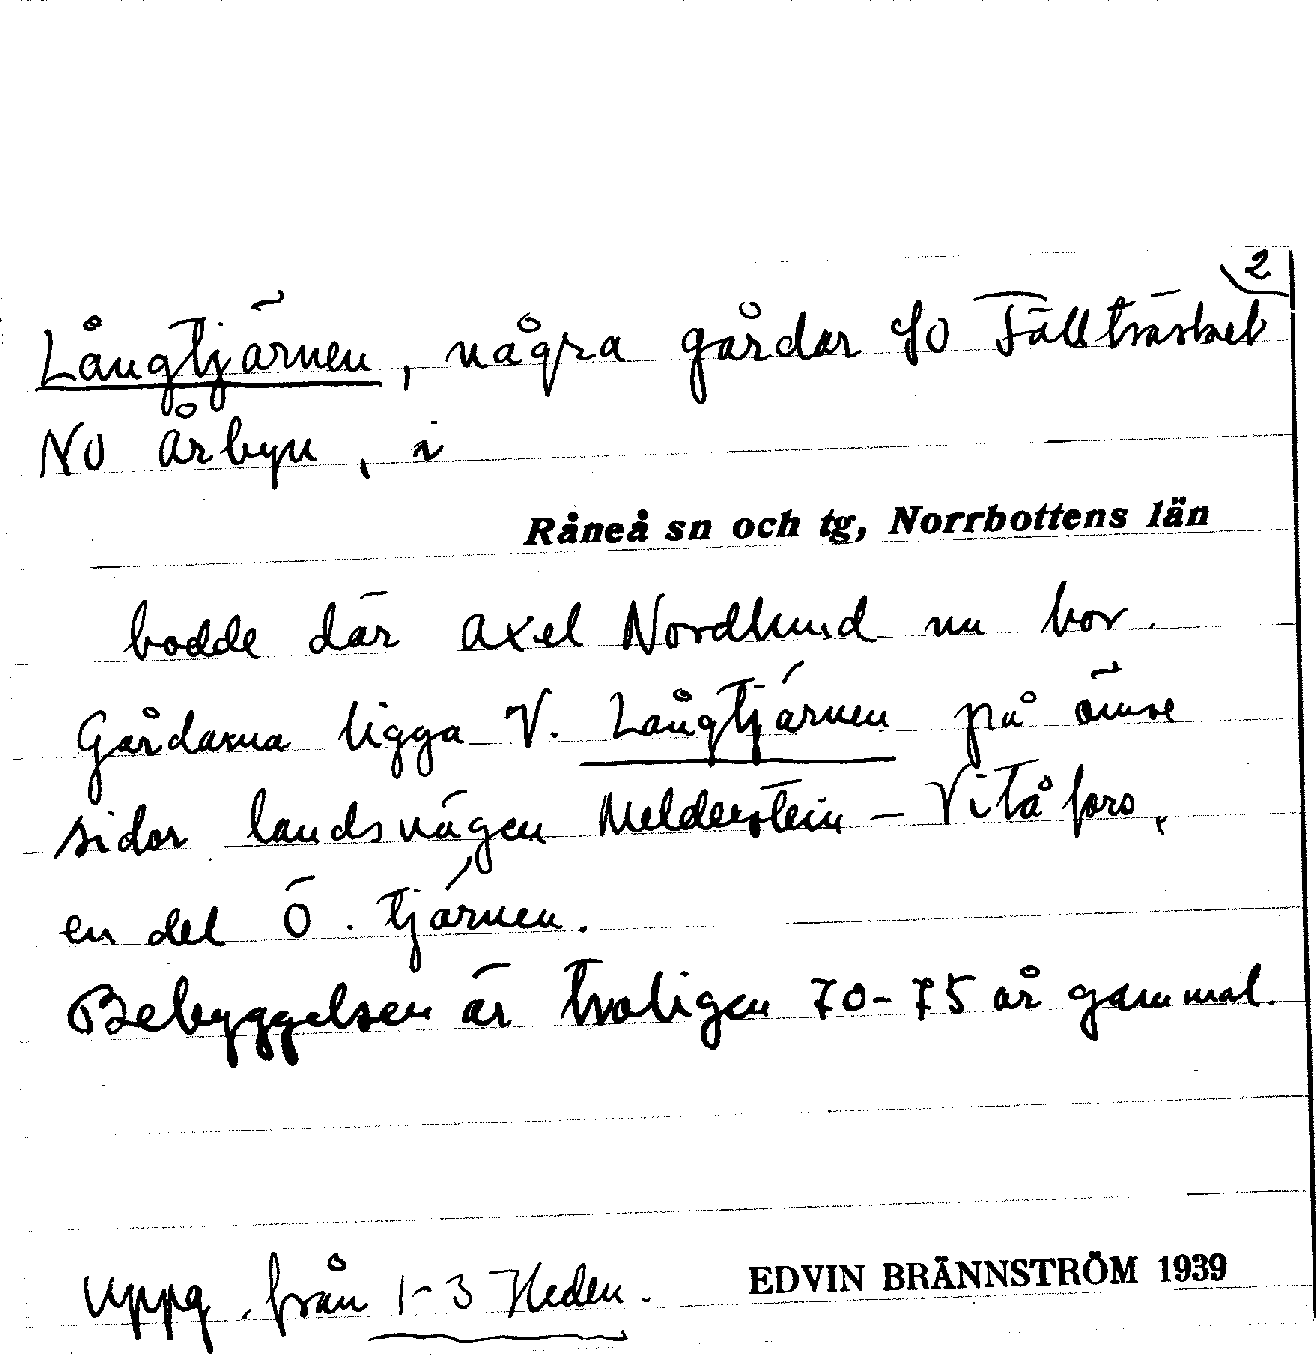 2
Långtjärnen, några gårdar SO Fällträsket
NO Årbyn, i
Råneå sn och tg, Norrbottens län
bodde där Axel Nordlund nu bor.
Gårdarna ligga V. Långtjärnen på ömse
sidor landsvägen Melderstein - Vitåfors,
en del Ö. tjärnen.
Bebyggelsen är troligen 70-75 år gammal.
Uppg. från 1-3 Heden.
EDVIN BRÄNNSTRÖM 1939